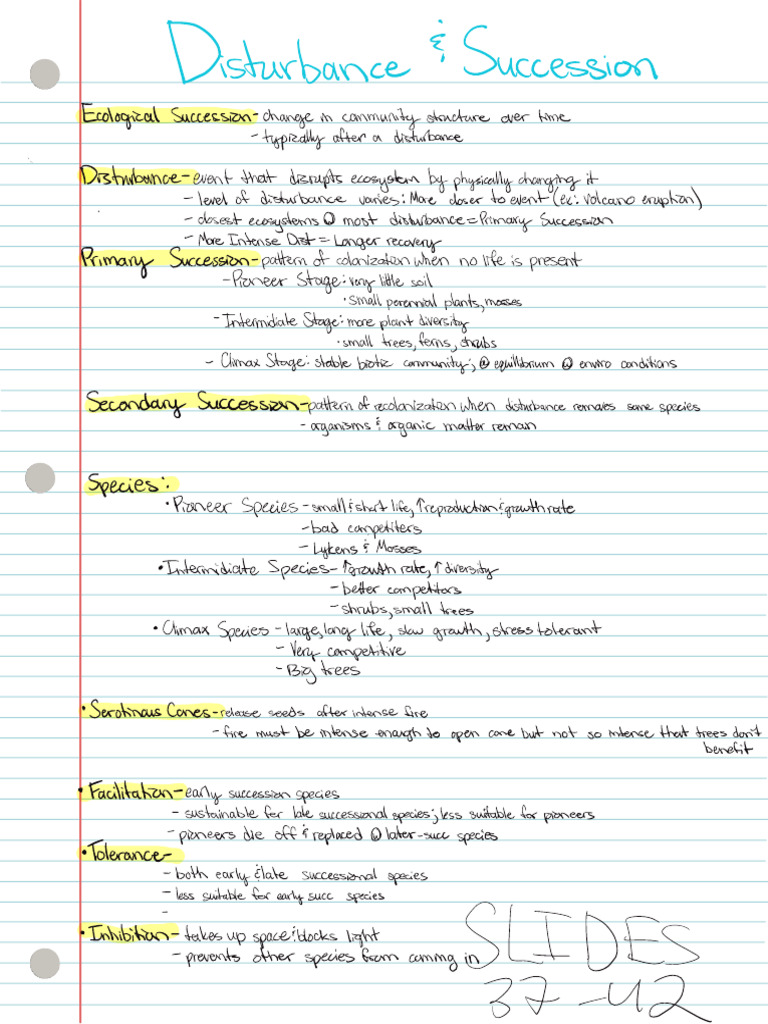 Disturbance & Succession
Ecological Succession - change in community structure over time
- typically after a disturbance
Disturbance - event that disrupts ecosystem by physically changing it
- level of disturbance varies: More closer to event (ex: volcano eruption)
- closest ecosystems @ most disturbance = Primary Succession
- More Intense Dist = Longer recovery
Primary Succession - pattern of colonization when no life is present
- Pioneer Stage: very little soil
• small perennial plants, mosses
- Intermidiate Stage: more plant diversity
• small trees, ferns, shrubs
- Climax Stage: stable biotic community; @ equilibrium @ enviro conditions
Secondary Succession - pattern of recolonization when disturbance removes some species
- organisms & organic matter remain
Species:
• Pioneer Species - small & short life, ↑ reproduction & growth rate
- bad competiters
- Lykens & Mosses
• Intermidiate Species - ↑ growth rate, ↑ diversity
- better competitors
- shrubs, small trees
• Climax Species - large, long life, slow growth, stress tolerant
- Very competitive
- Big trees
• Serotinous Cones - release seeds after intense fire
- fire must be intense enough to open cone but not so intense that trees don't
benefit
• Facilitation - early succession species
- sustainable for late successional species; less suitable for pioneers
- pioneers die off & replaced @ later-succ species
• Tolerance -
- both early & late successional species
- less suitable for early succ species
-
• Inhibition - takes up space & blocks light
- prevents other species from coming in
SLIDES
37-42